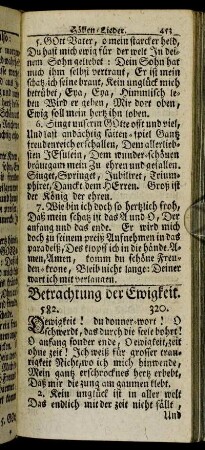 Höllen-Lieder. 453
5. GOtt Vater, o mein starcker held,
Du hast mich ewig für der welt In dei-
nem Sohn geliebt: Dein Sohn hat
mich ihm selbst vertraut, Er ist mein
schatz ich seine braut, Kein unglück mich
betrübet, Eya, Eya, Himmlisch le-
ben Wird er geben, Mir dort oben,
Ewig soll mein hertz ihn loben.
6. Singt unserm GOtte oft und viel,
Und last andächtig saiten-spiel Gantz
freudenreich erschallen, Dem allerlieb-
sten JEsulein, Dem wunder-schönen
bräutgam mein Zu ehren und gefallen.
Singet, Springet, Jubiliret, Trium-
phiret, Danckt dem HErren. Groß ist
der König der ehren.
7. Wie bin ich doch so hertzlich froh,
Daß mein schatz ist das A und O, Der
anfang und das ende. Er wird mich
doch zu seinem preiß Aufnehmen in das
paradeiß, Deß klopf ich in die hände. A-
men, Amen, komm du schöne Freu-
den-krone, Bleib nicht lange: Deiner
wart ich mit verlangen.
Betrachtung der Ewigkeit.
582. 320.
Oewigkeit! du donner-wort! O
schwerdt, das durch die seele bohrt!
O anfang sonder ende, O ewigkeit, zeit
ohne zeit! Ich weiß für grosser trau-
rigkeit Nicht, wo ich mich hinwende.
Mein gantz erschrocknes hertz erbebt,
Daß mir die zung am gaumen klebt.
2. Kein unglück ist in aller welt
Das endlich mit der zeit nicht fällt,
Und